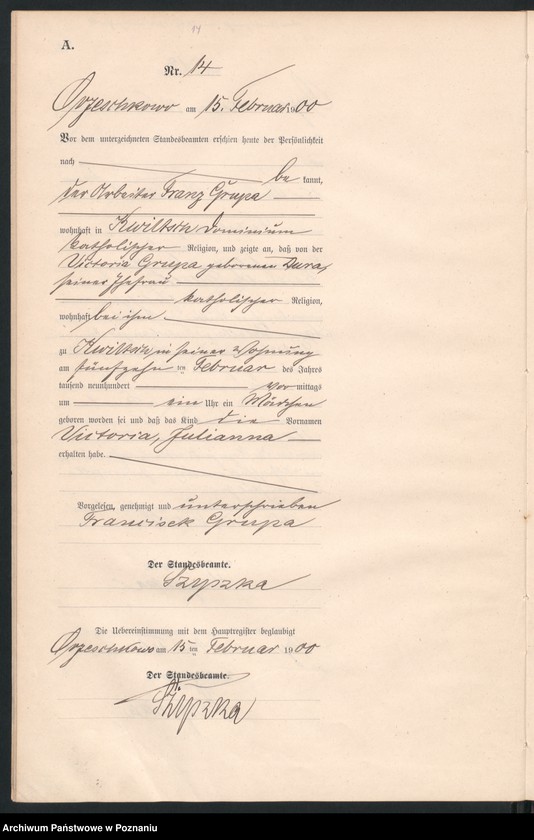 14
A.
Nr. 14
Orzeschkowo am 15. Februar 1900
Vor dem unterzeichneten Standesbeamten erschien heute der Persönlichkeit
nach be kannt,
der Arbeiter Franz Grupa
wohnhaft in Kwiltsch Dominium
katholischer Religion, und zeigte an, daß von der
Victoria Grupa geborenen Dura,
seiner Ehefrau
katholischer Religion,
wohnhaft bei ihm
zu Kwiltsch, in seiner Wohnung
am fünfzehn ten Februar des Jahres
tausend neunhundert vor mittags
um ein Uhr ein Mädchen
geboren worden sei und daß das Kind die Vornamen
Victoria, Julianna
erhalten habe.
Vorgelesen, genehmigt und unterschrieben
Francisek Grupa
Der Standesbeamte.
Szypzka
Die Uebereinstimmung mit dem Hauptregister beglaubigt
Orzeschkowo am 15 ten Februar 1900
Der Standesbeamte.
Szypzka
Archiwum Państwowe w Poznaniu